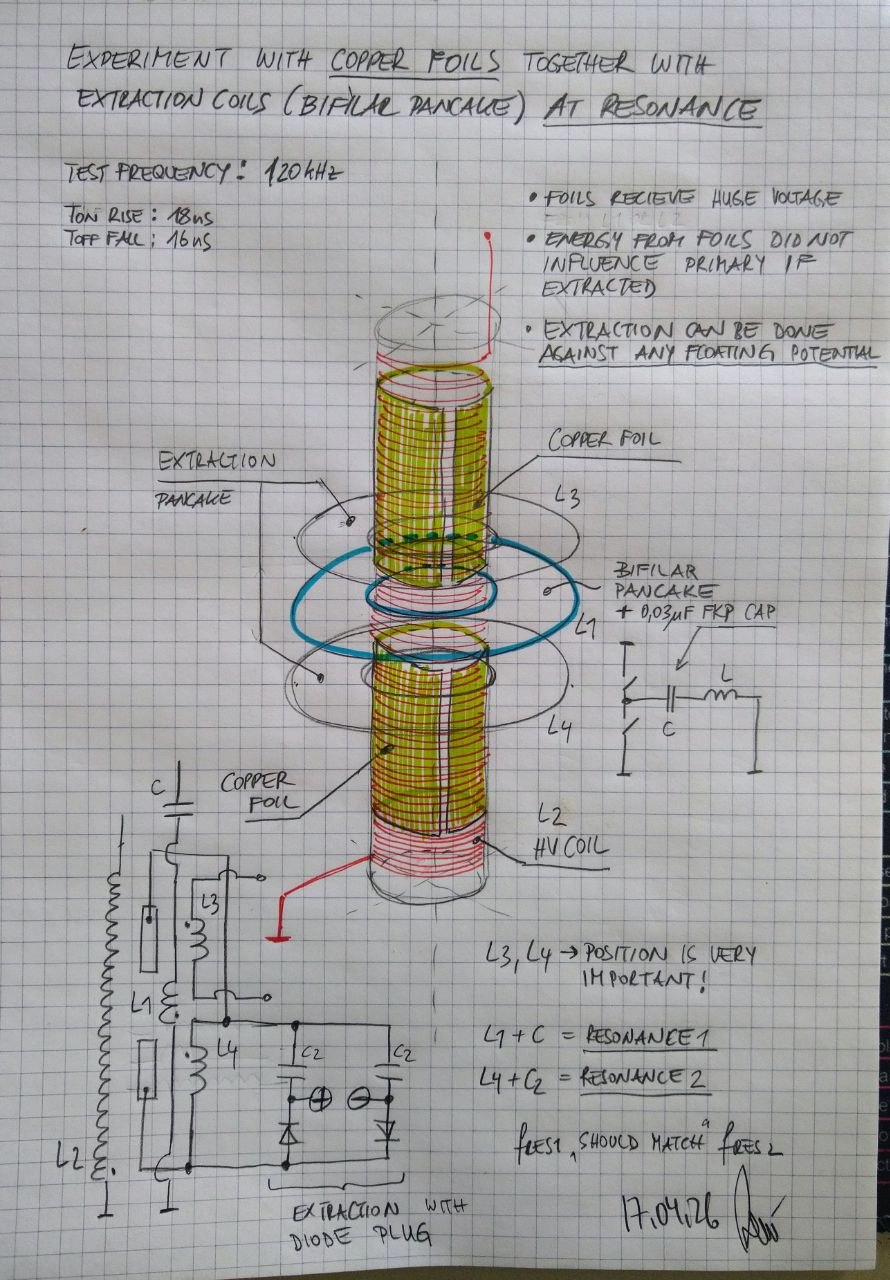 EXPERIMENT WITH COPPER FOILS TOGETHER WITH
EXTRACTION COILS (BIFILAR PANCAKE) AT RESONANCE
TEST FREQUENCY: 120kHz
TON RISE: 18ns
TOFF FALL; 16ns
• FOILS RECIEVE HUGE VOLTAGE
• ENERGY FROM FOILS DID NOT
INFLUENCE PRIMARY IF
EXTRACTED
• EXTRACTION CAN BE DONE
AGAINST ANY FLOATING POTENTIAL
COPPER FOIL
EXTRACTION
PANCAKE
L3
BIFILAR
PANCAKE
+ 0,03µF FKP CAP
L1
L
C
L4
COPPER
FOIL
L2
HV COIL
C
L3
L1
L4
C2
C2
+ −
L2
EXTRACTION WITH
DIODE PLUG
L3, L4 → POSITION IS VERY
IMPORTANT!
L1 + C = RESONANCE 1
L4 + C2 = RESONANCE 2
fRES1 "SHOULD MATCH" fRES2
17.04.26